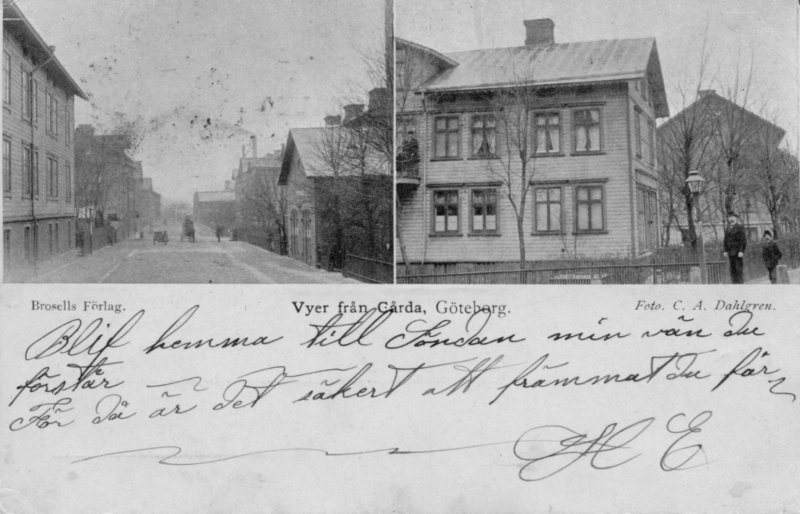 Brosells Förlag.
Vyer från Gårda, Göteborg.
Foto. C. A. Dahlgren.
Blif hemma till Söndan min vän du
förstår
För då är det säkert att främmat du får
H E